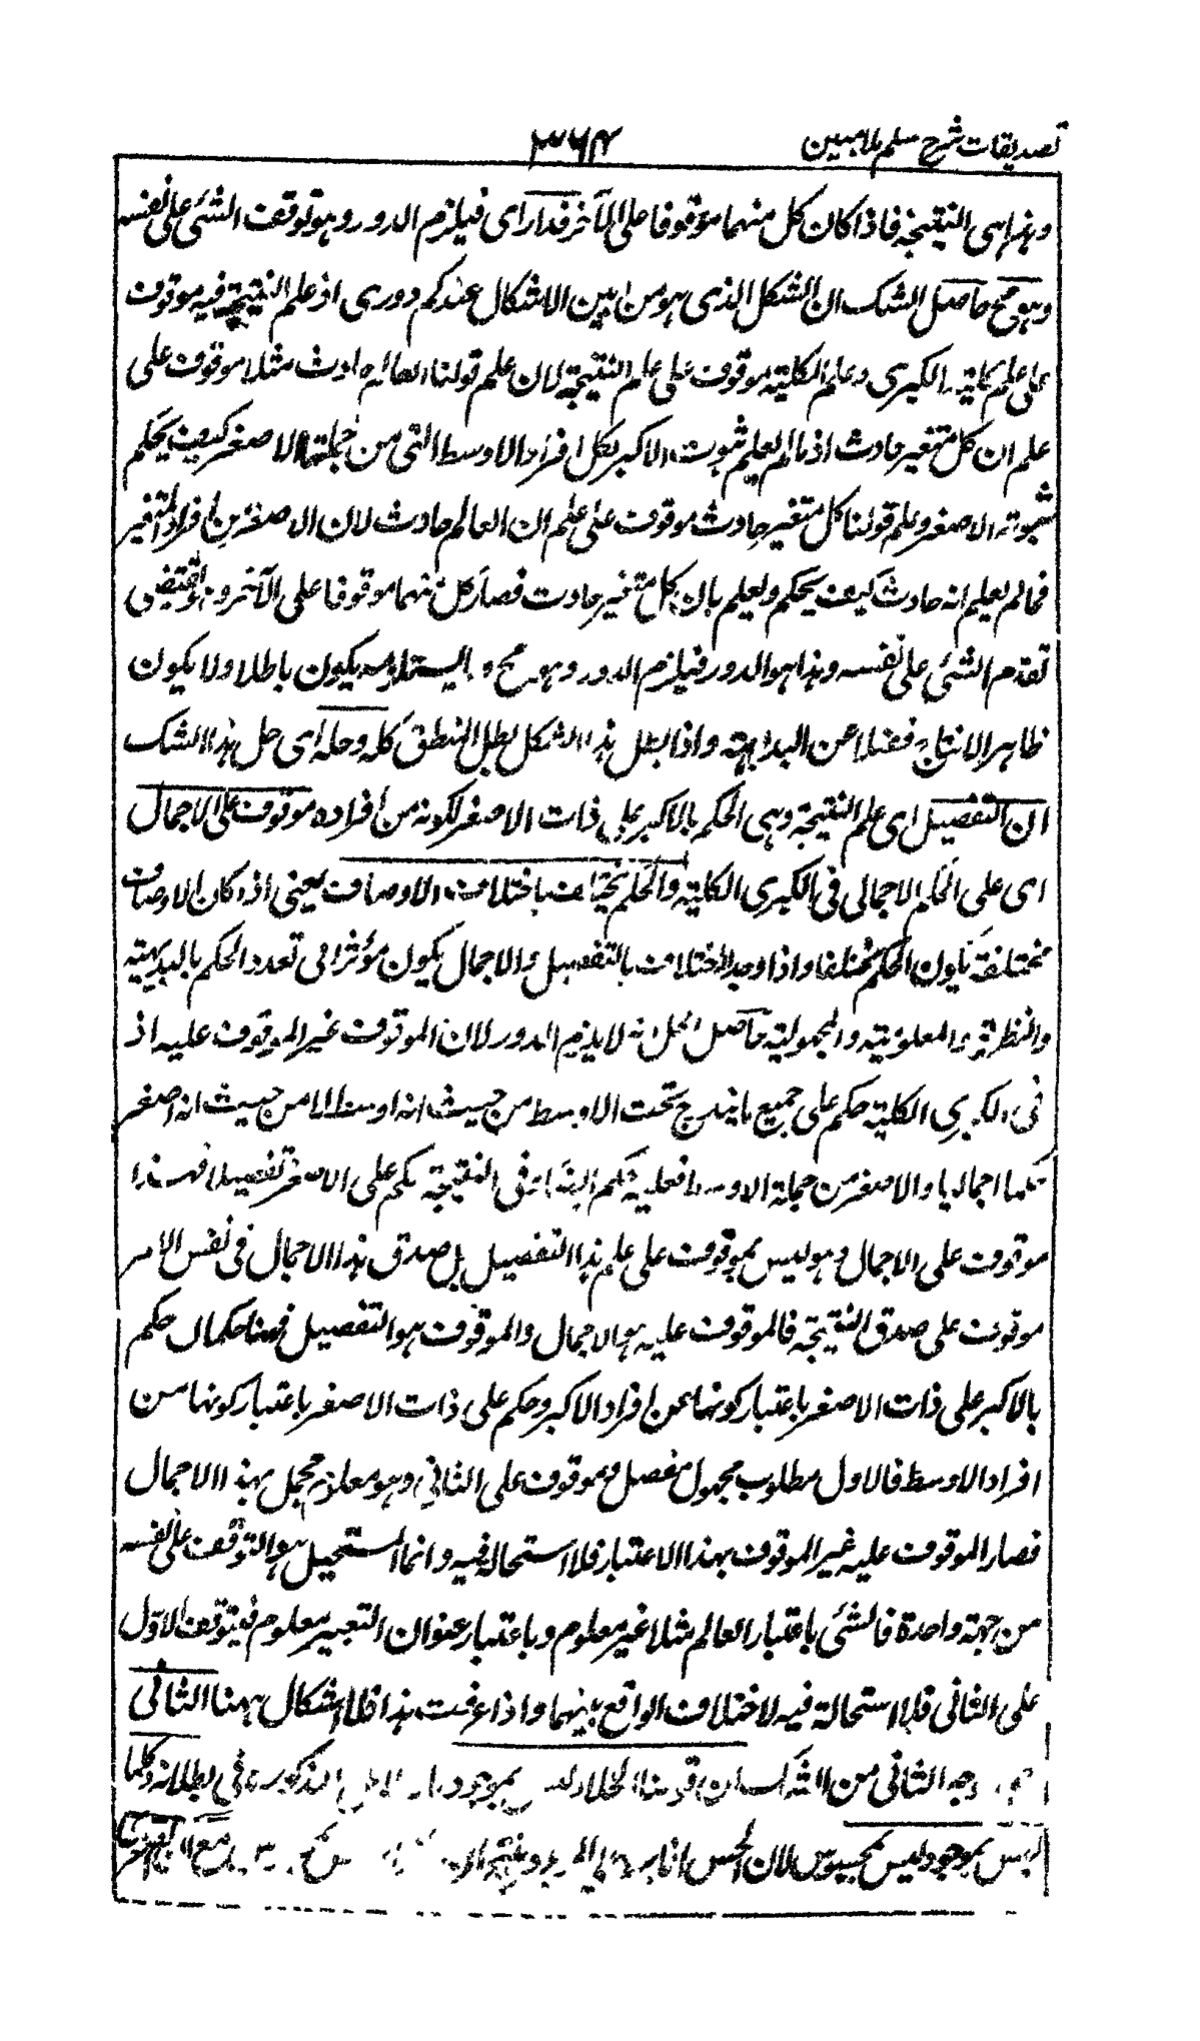 تصديقات شرح سلم ملا مبين
۳۶۴
وهذا هي النتيجة فاذا كان كل منهما موقوفا على الآخر فدار اى فيلزم الدور وهو توقف الشئ على نفسه
وهو مح حاصل الشك ان الشكل الذى هو من ابين الاشكال عندكم دورى اذ علم النتيجة فيه موقوف
على علم كلية الكبرى وعلم الكلية موقوف على علم النتيجة لان علم قولنا العالم حادث مثلا موقوف على
علم ان كل متغير حادث اذ ما لم يعلم ثبوت الاكبر لكل افراد الاوسط التى من جملتها الاصغر كيف يحكم
بثبوته الاصغر وعلم قولنا كل متغير حادث موقوف على علم ان العالم حادث لان الاصغر من افراد المتغير
فما لم يعلم انه حادث كيف يحكم ويعلم بان كل متغير حادث فصار كل منهما موقوفا على الآخر و يقتضى
تقدم الشئ على نفسه وهذا هو الدور فيلزم الدور وهو مح وما يستلزمه يكون باطلا ولا يكون
ظاهر الانتاج فضلا عن البداهة واذا بطل هذا الشكل بطل المنطق كله وحله اى حل هذا الشك
ان التفصيل اى علم النتيجة وهى الحكم بالاكبر على ذات الاصغر لكونه من افراده موقوف على الاجمال
اى على الحكم الاجمالى فى الكبرى الكلية والحكم يختلف باختلاف الاوصاف يعنى اذا كان الاوصاف
مختلفة يكون الحكم مختلفا واذا وجد الاختلاف بالتفصيل والاجمال يكون مؤثرا فى تعدد الحكم بالبديهية
والنظرية والمعلومية والمجهولية حاصل الحل انه لا يلزم الدور لان الموقوف غير الموقوف عليه اذ
فى الكبرى الكلية حكم على جميع ما يندرج تحت الاوسط من حيث انه اوسط لا من حيث انه اصغر
حكما اجماليا والاصغر من جملة الاوسط فعليه حكم البتة فى النتيجة حكم على الاصغر تفصيلا فهذا
موقوف على الاجمال وهو ليس بموقوف على علم هذا التفصيل بل صدق هذا الاجمال فى نفس الامر
موقوف على صدق النتيجة فالموقوف عليه هو الاجمال والموقوف هو التفصيل فههنا حكمان حكم
بالاكبر على ذات الاصغر باعتبار كونها من افراد الاكبر وحكم على ذات الاصغر باعتبار كونها من
افراد الاوسط فالاول مطلوب مجهول مفصل وموقوف على الثانى وهو معلوم مجمل بهذا الاجمال
فصار الموقوف عليه غير الموقوف بهذا الاعتبار فلا استحالة فيه وانما المستحيل هو التوقف على نفسه
من جهة واحدة فالشئ باعتبار العالم مثلا غير معلوم وباعتبار عنوان التعبير معلوم فيتوقف الاول
على الثانى فلا استحالة فيه لاختلاف الواقع بينهما واذا عرفت هذا فلا اشكال ههنا الثانى
وجه الثانى من الشك ان قولنا الخلاء ليس بموجود وكلما
ليس بموجود ليس بمحسوس لان الحس انما